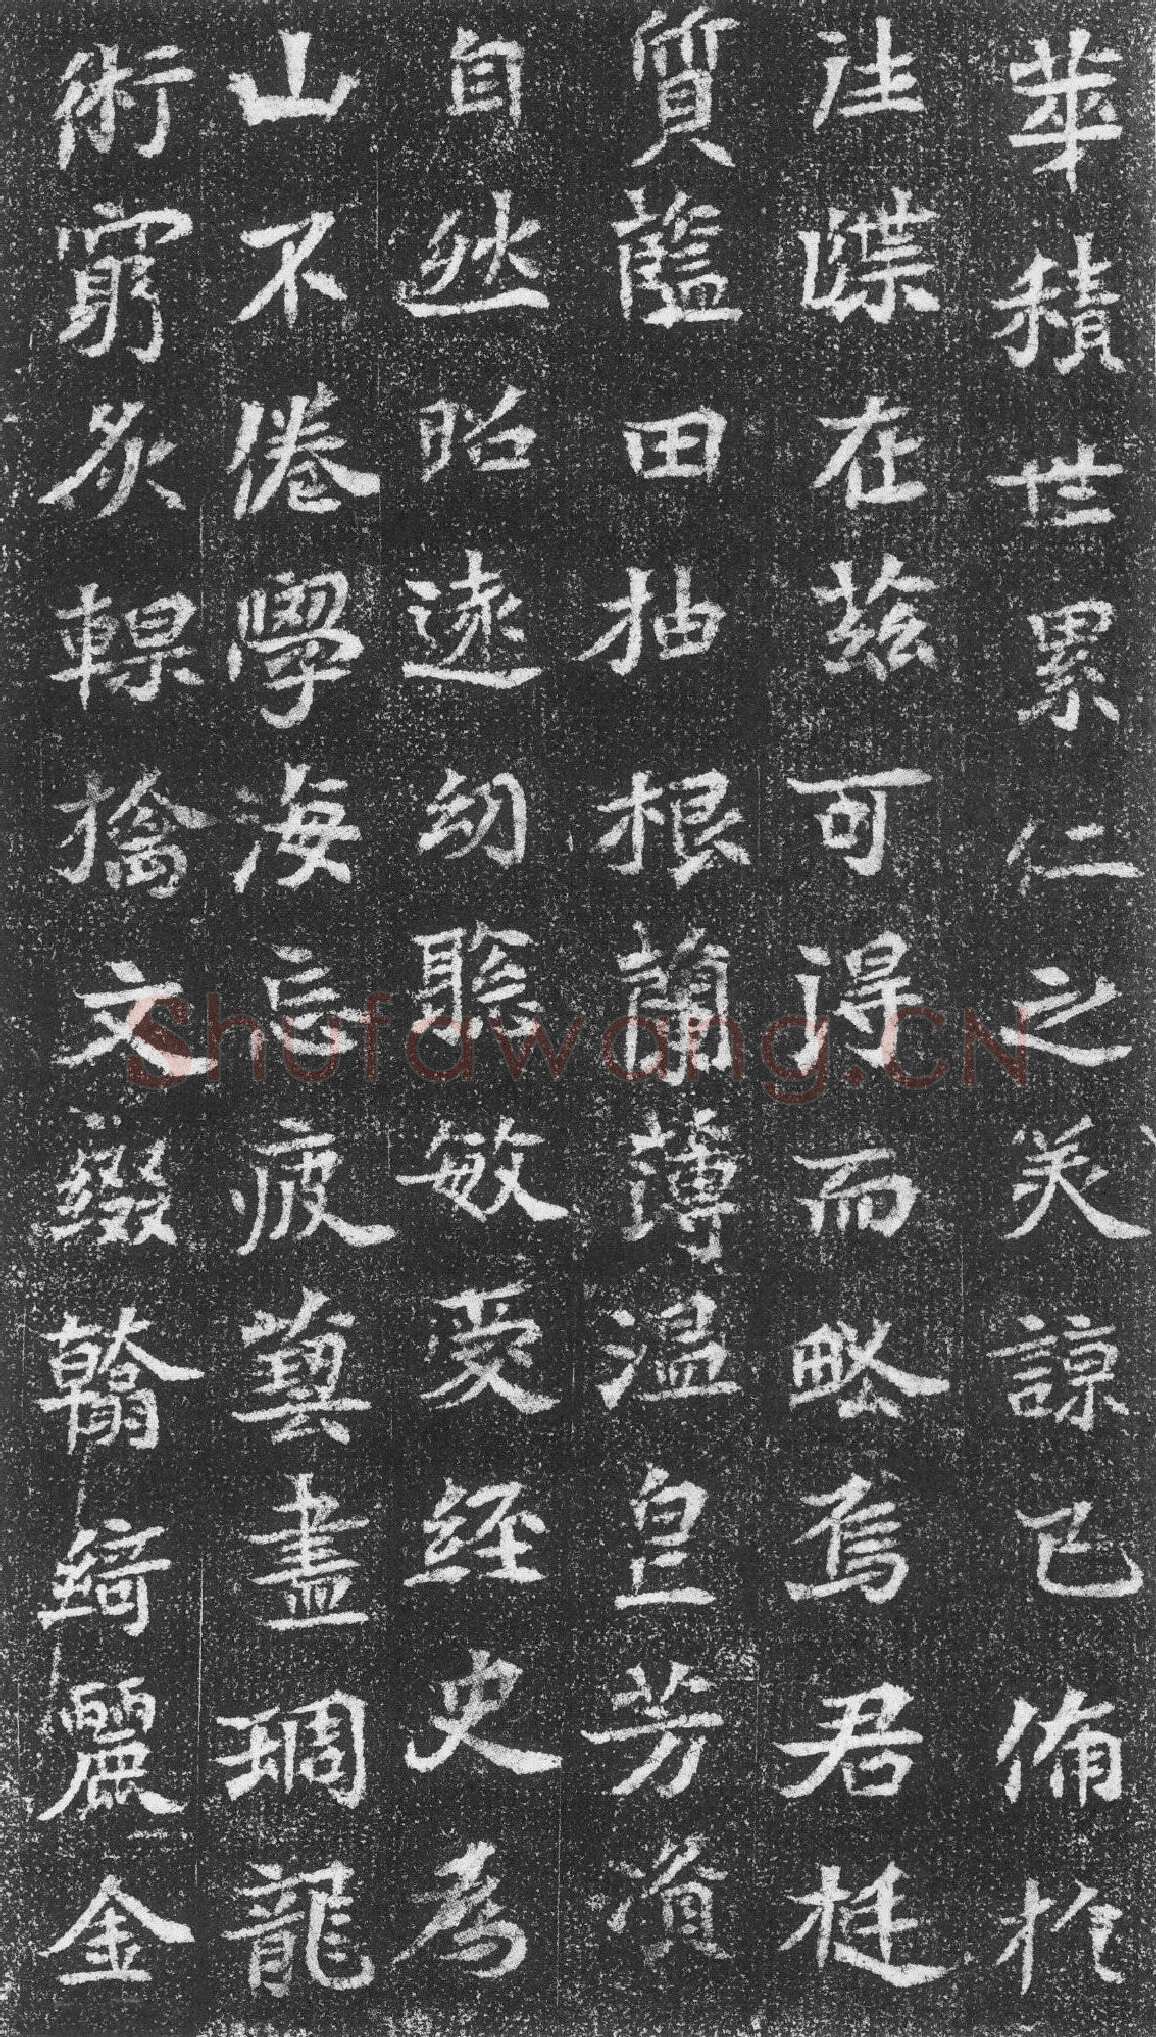 華積世累仁之美諒已備於
注牒在茲可得而略焉君挺
質藍田抽根蘭薄温皇芳潤
自然昭遠幼聰敏愛經史為
山不倦學海忘疲藝盡琱龍
術窮炙輠摛文綴翰綺麗金
Shufawang.CN